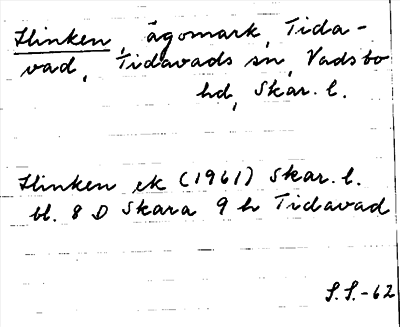 Slinken, ägomark, Tida-
vad, Tidavads sn, Vadsbo
hd, Skar. l.
Slinken ek (1961) Skar. l.
bl. 8 D Skara 9 h Tidavad
S.S.-62